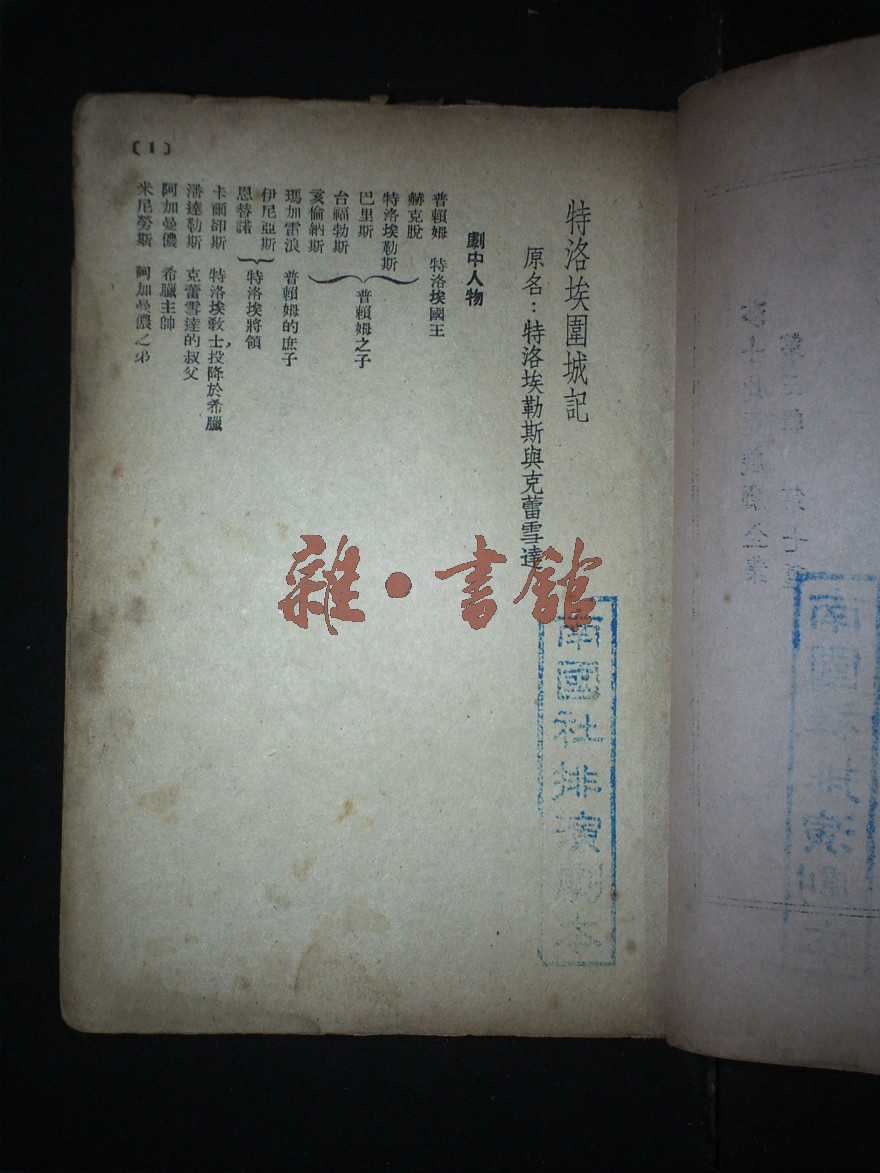 特洛埃圍城記
原名：特洛埃勒斯與克蕾雪達
劇中人物
普賴姆 特洛埃國王
赫克脫
特洛埃勒斯
巴里斯
台福勃斯
亥倫納斯
普賴姆之子
瑪加雷浪 普賴姆的庶子
伊尼亞斯
恩替諾
特洛埃將領
卡爾卻斯 特洛埃教士，投降於希臘
潘達勒斯 克蕾雪達的叔父
阿加曼儂 希臘主帥
米尼勞斯 阿加曼儂之弟
(1)
南國社排演劇本
雜·書館